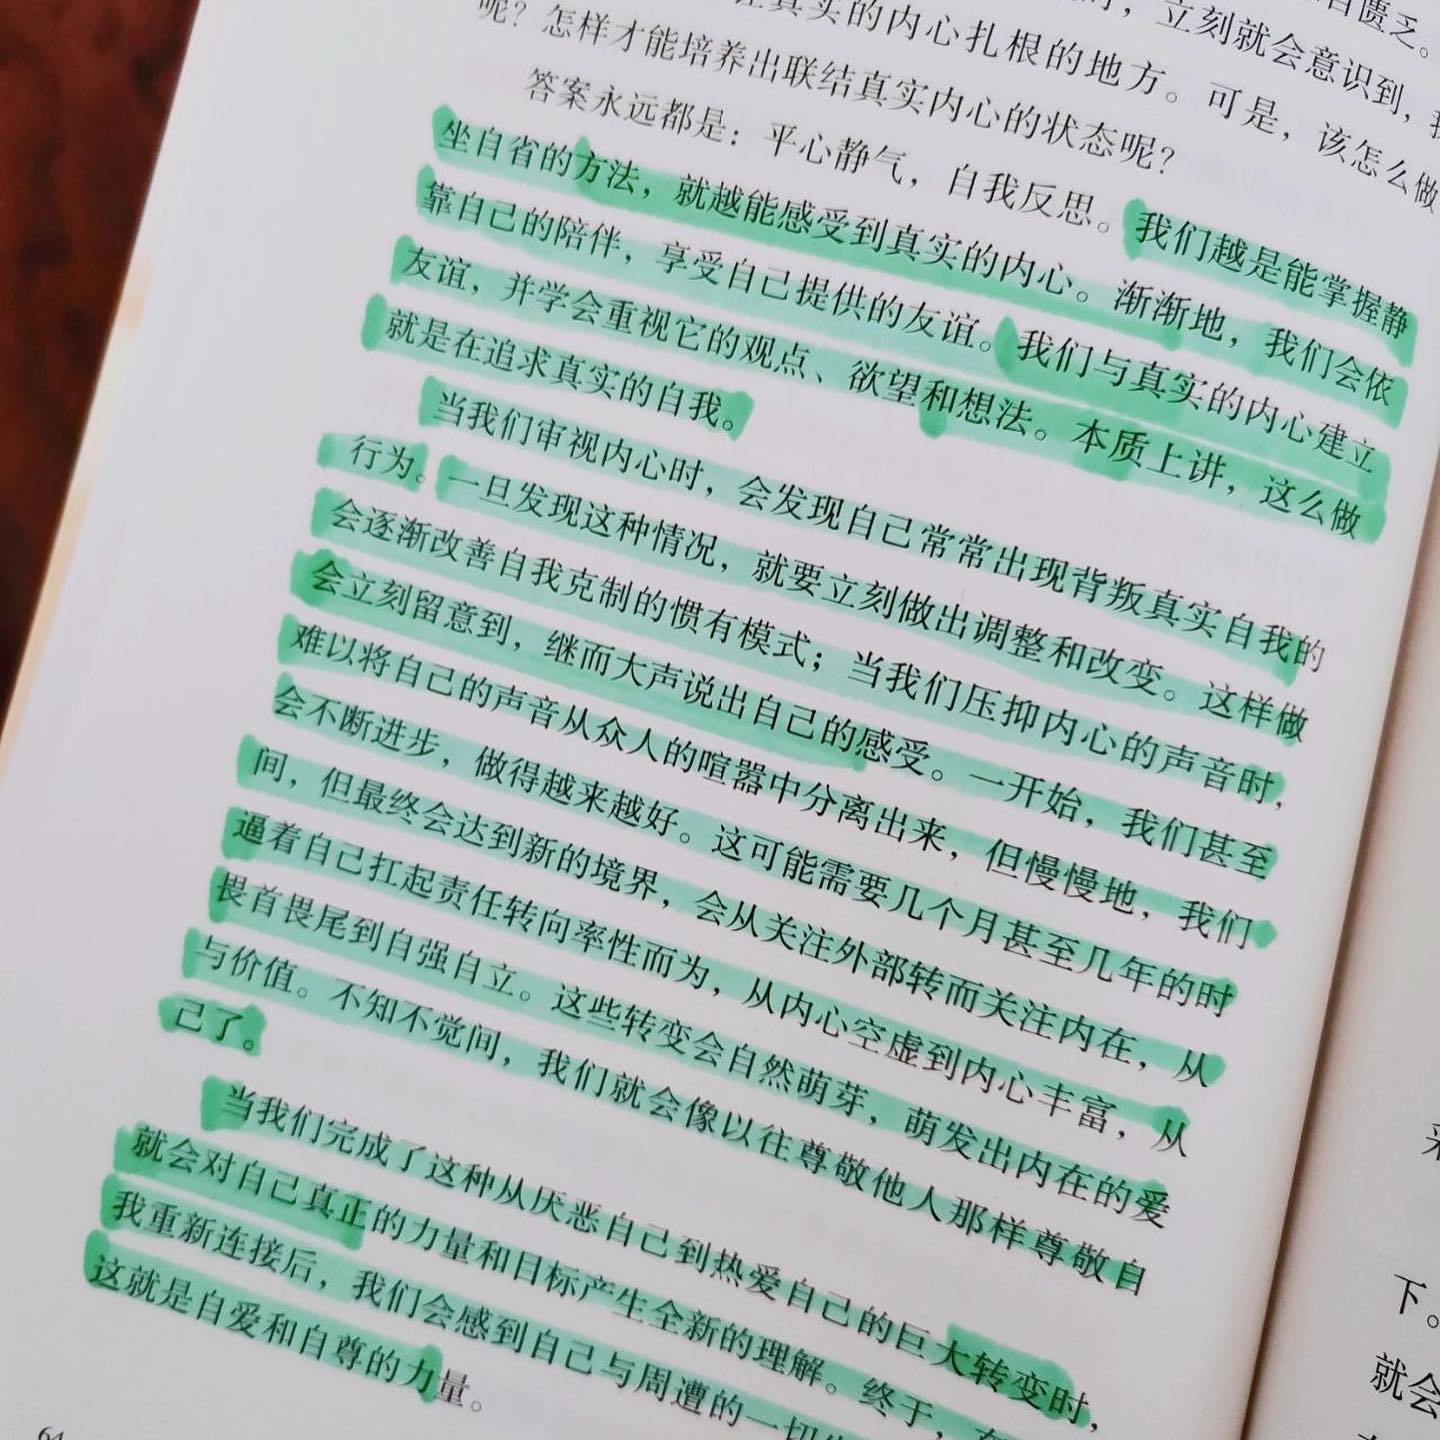 自匮乏。
在真实的内心扎根的地方。可是，该怎么做
时，立刻就会意识到，我
呢？怎样才能培养出联结真实内心的状态呢？
答案永远都是：平心静气，自我反思。我们越是能掌握静
坐自省的方法，就越能感受到真实的内心。渐渐地，我们会依
靠自己的陪伴，享受自己提供的友谊。我们与真实的内心建立
友谊，并学会重视它的观点、欲望和想法。本质上讲，这么做
就是在追求真实的自我。
当我们审视内心时，会发现自己常常出现背叛真实自我的
行为。一旦发现这种情况，就要立刻做出调整和改变。这样做
会逐渐改善自我克制的惯有模式；当我们压抑内心的声音时，
会立刻留意到，继而大声说出自己的感受。一开始，我们甚至
难以将自己的声音从众人的喧嚣中分离出来，但慢慢地，我们
会不断进步，做得越来越好。这可能需要几个月甚至几年的时
间，但最终会达到新的境界，会从关注外部转而关注内在，从
逼着自己扛起责任转向率性而为，从内心空虚到内心丰富，从
畏首畏尾到自强自立。这些转变会自然萌芽，萌发出内在的爱
与价值。不知不觉间，我们就会像以往尊敬他人那样尊敬自
己了。
当我们完成了这种从厌恶自己到热爱自己的巨大转变时，
就会对自己真正的力量和目标产生全新的理解。终于，在
我重新连接后，我们会感到自己与周遭的一切
这就是自爱和自尊的力量。
64
下。
就会